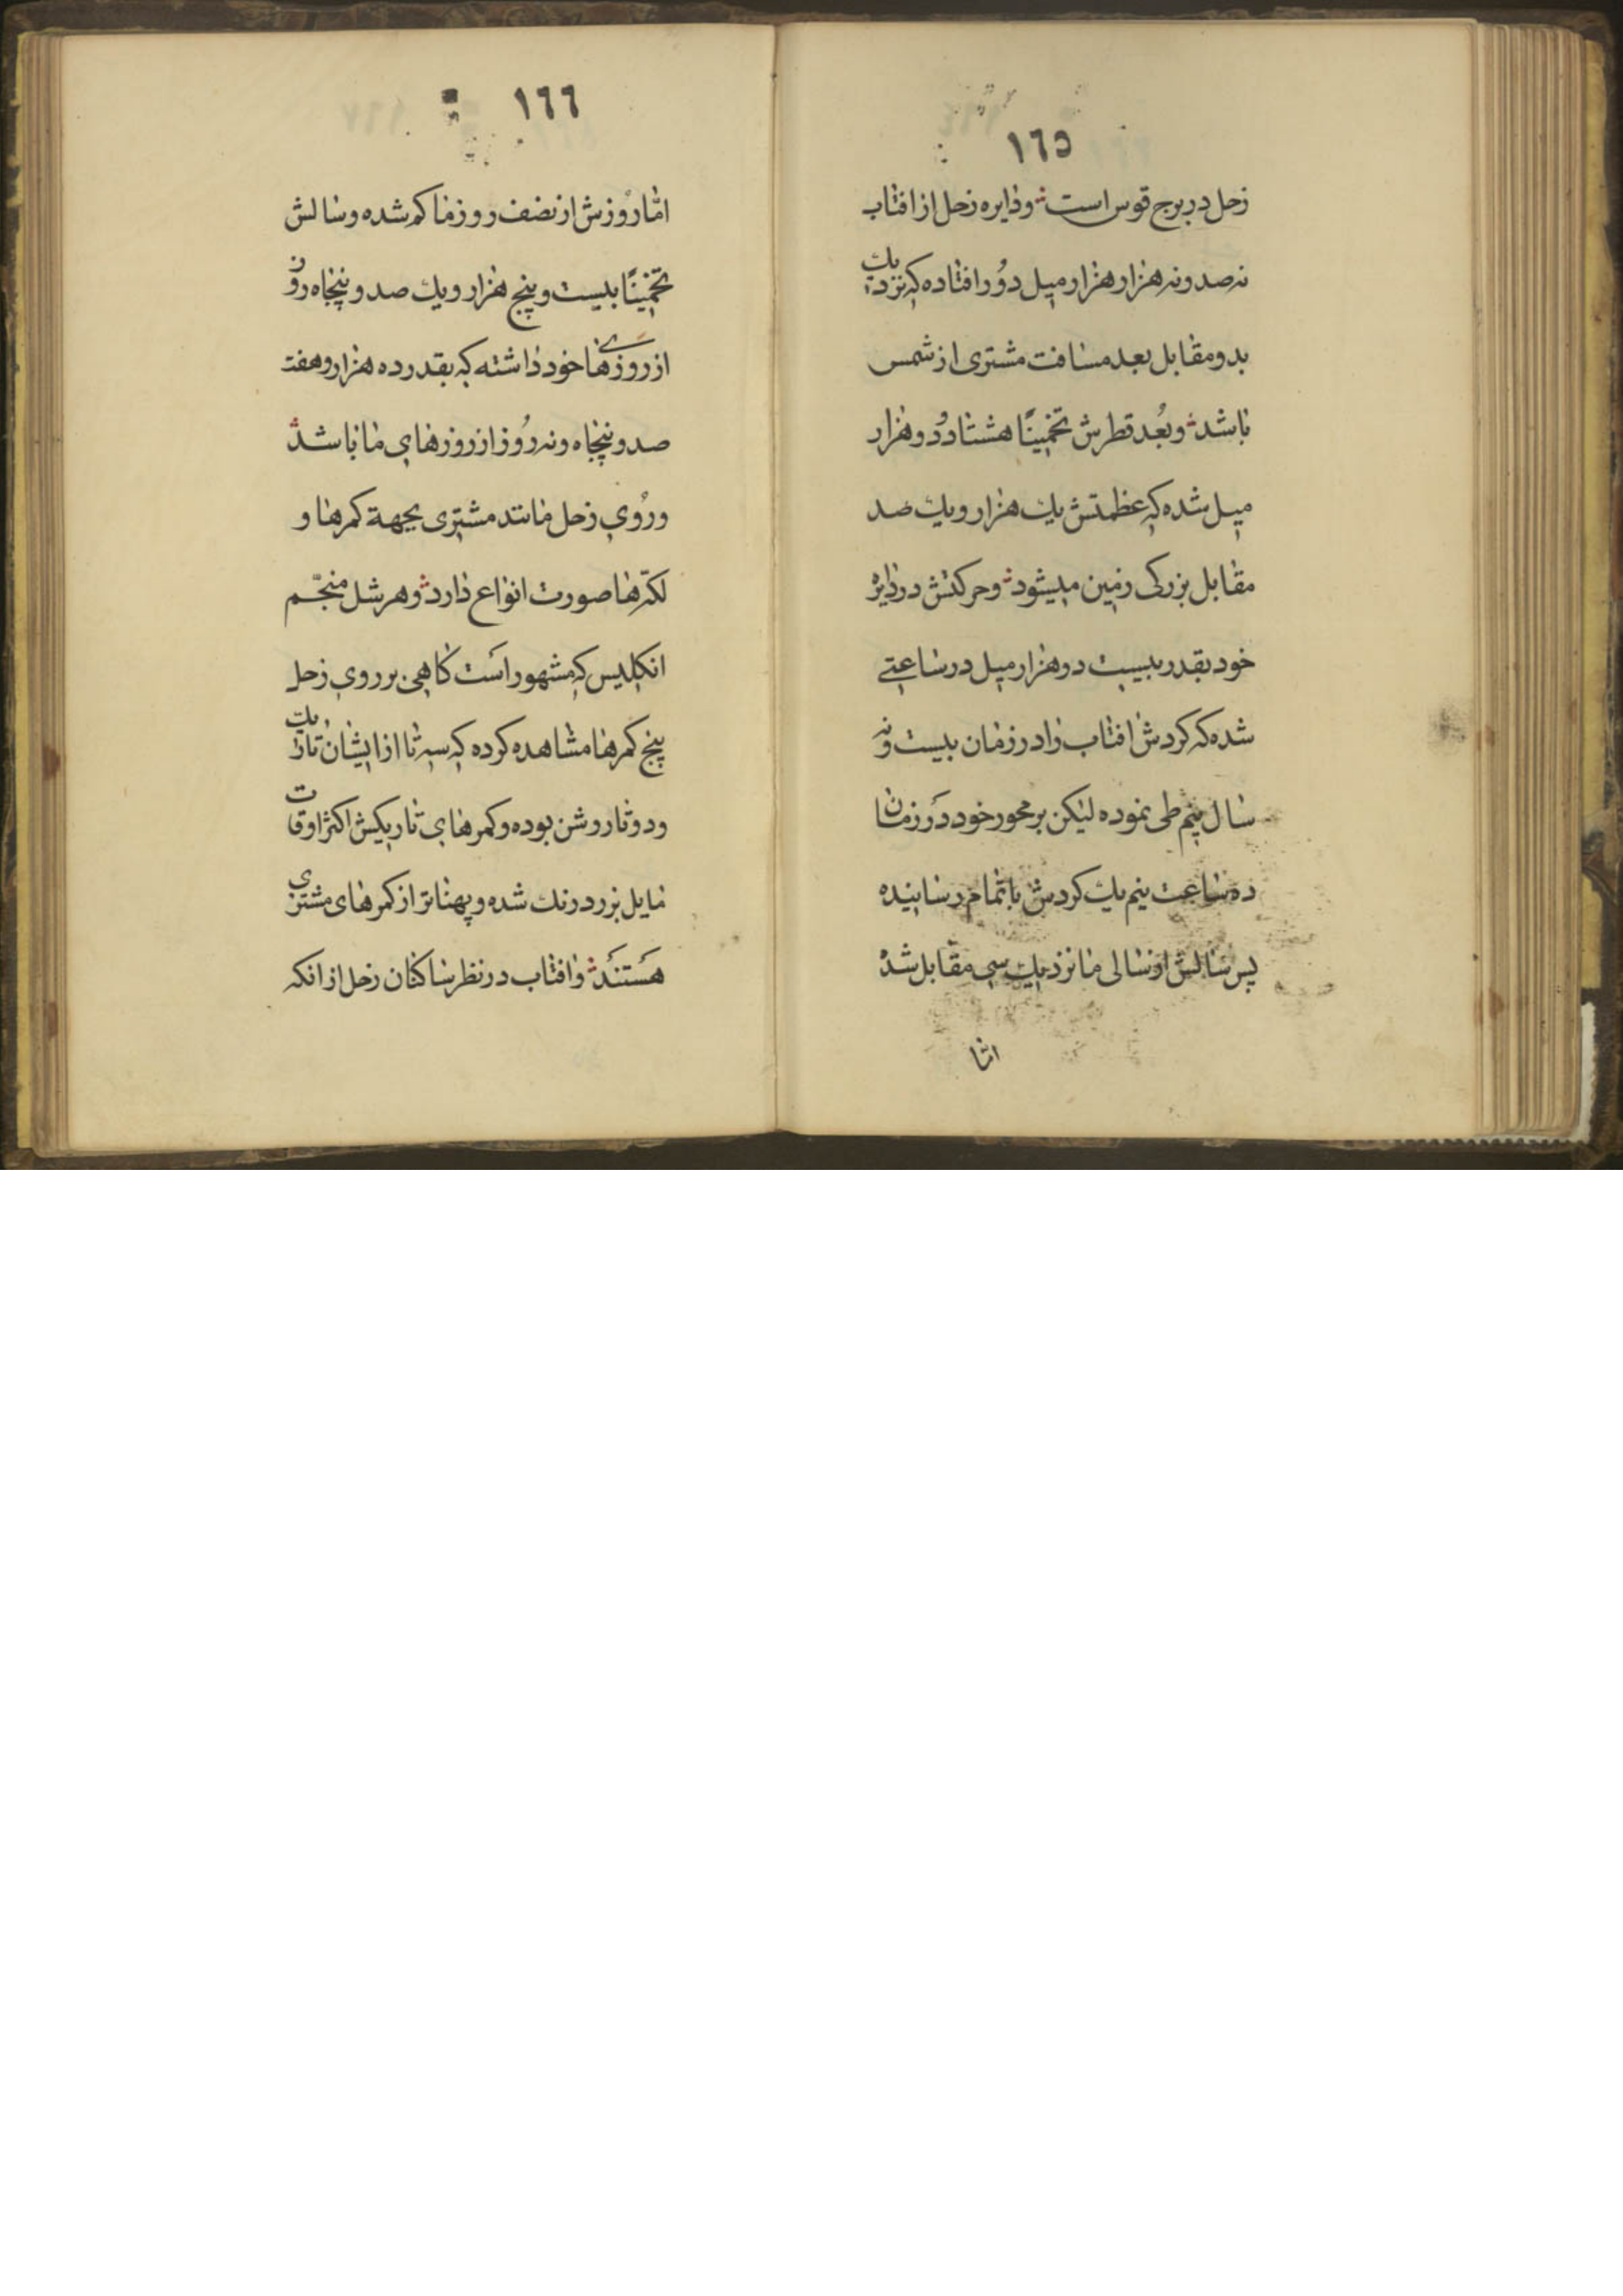 ١٦٥
زحل در برج قوس است و دایره زحل از افتاب
نه صد و نه هزار هزار میل دوُر افتاده که نزدیك
بدو مقابل بعد مسافت مشتری از شمس
باشد و بُعد قطرش تخمینًا هشتاد دُو هزار
میل شده که عظمتش یك هزار و یك صد
مقابل بزرکی زمین میشود و حرکتش در دایرهٔ
خود بقدر بیست دو هزار میل در ساعتے
شده که کردش افتاب را در زمان بیست و نه
سال نیم طی نموده لیکن بر محور خود در زمان
ده ساعت نیم یك کردش باتمام رسانیده
پس سالش از سالی ما نزدیك سی مقابل شد
امّا
١٦٦
امّا رُوزش از نصف روز ما کم شده و سالش
تخمینًا بیست و پنج هزار و یك صد و پنجاه روُز
از روزهاے خود داشته که بقدر ده هزار و هفت
صد و پنجاه و نه رُوز از روزهای ما باشد
و رُوی زحل مانند مشتری بجهة کمرها و
لکّه‌ها صورت انواع دارد و هرشل منجّم
انکلیس که مشهور است کاهی بر روی زحل
پنج کمرها مشاهده کرده که سه تا از ایشان تاریك
و دو تا روشن بوده و کمرهای تاریکش اکثر اوقات
مایل بزرد رنك شده و پهناتر از کمرهای مشتری
هستند و افتاب در نظر ساکنان زحل از انکه